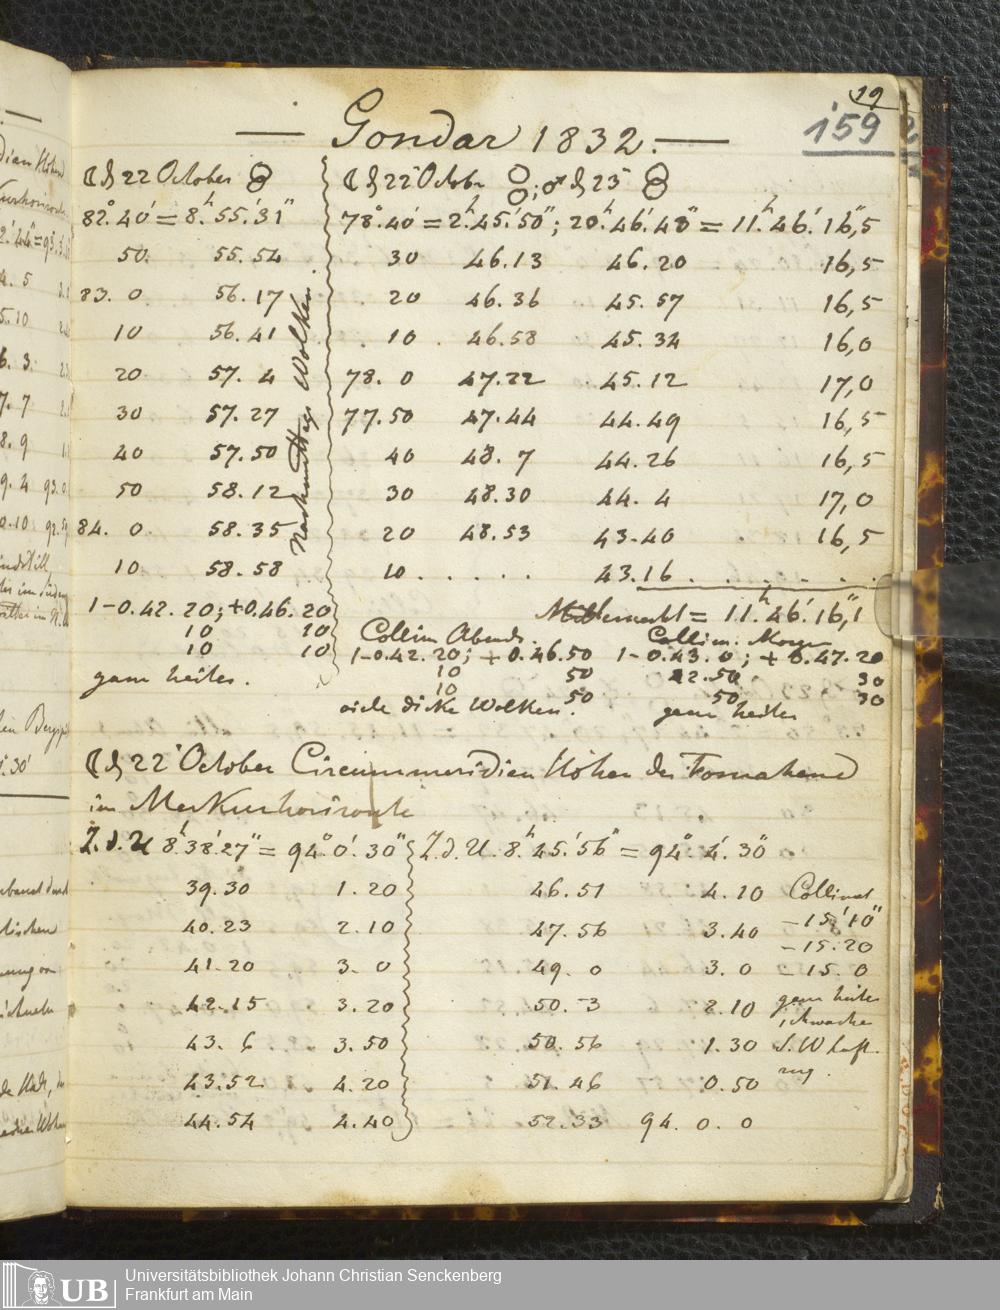 19
159
— Gondar 1832. —
☾ d 22 October
82°.40' = 8h.55'.31"
50. 55.54
83. 0. 56.17
10 56.41
20 57. 4
30 57.27
40 57.50
50 58.12
84. 0. 58.35
10 58.58
Nachmittags Wolken.
1-0.42.20; +0.46.20
10 20
10 10
ganz heiter.
☾ d 22 Octobr ; ♂ d 23
78°.40' = 2h.45'.50"; 20h.46'.48" = 11h.46'.16",5
30 46.13 46.20 16,5
20 46.36 45.57 16,5
10. 46.58 45.34 16,0
78. 0 47.22 45.12 17,0
77.50 47.44 44.49 16,5
40 48. 7 44.26 16,5
30 48.30 44. 4 17,0
20 48.53 43.40 16,5
10 . . . . . 43.16 . . . . . .
Mitternacht = 11h.46'.16",1
Collim Abends. Collim. Morgen
1-0.42.20; + 0.46.50 1-0.43. 0; + 0.47.20
10 50 42.50 30
10 50 50 30
viele dicke Wolken. ganz heiter
☾ d 22 October Circummeridian Höhen des Fomahand
im Merkurhorizonte
Z.d.U 8h.38'.27" = 94°.0'.30"
39.30 1.20
40.23 2.10
41.20 3. 0
42.15 3.20
43. 6 3.50
43.52 4.20
44.54 4.40
Z.d.U. 8h.45'.56" = 94°.4'.30"
46.51 4.10
47.56 3.40
49. 0 3. 0
50. 3 2.10
50.56 1.30
51.46 0.50
52.33 94. 0. 0
Collimat
-15'10"
-15.20
-15. 0
ganz heiter
schwacher
S.W Luft-
zug.
Universitätsbibliothek Johann Christian Senckenberg
UB Frankfurt am Main